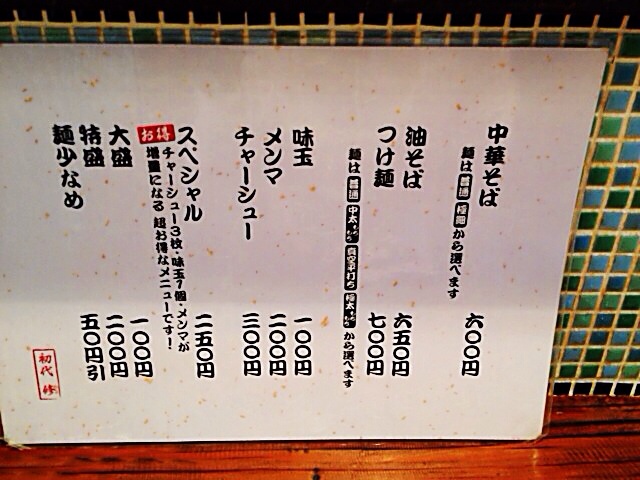 中華そば 六〇〇円
麺は 普通 極細 から選べます
油そば 六五〇円
つけ麺 七〇〇円
麺は 普通 中太 真空平打ち 極太 から選べます
味玉 一〇〇円
メンマ 二〇〇円
チャーシュー 三〇〇円
スペシャル 二五〇円
お得 チャーシュー3枚・味玉1個・メンマが
増量になる 超お得なメニューです!
大盛 一〇〇円
特盛 二〇〇円
麺少なめ 五〇円引
初代 修